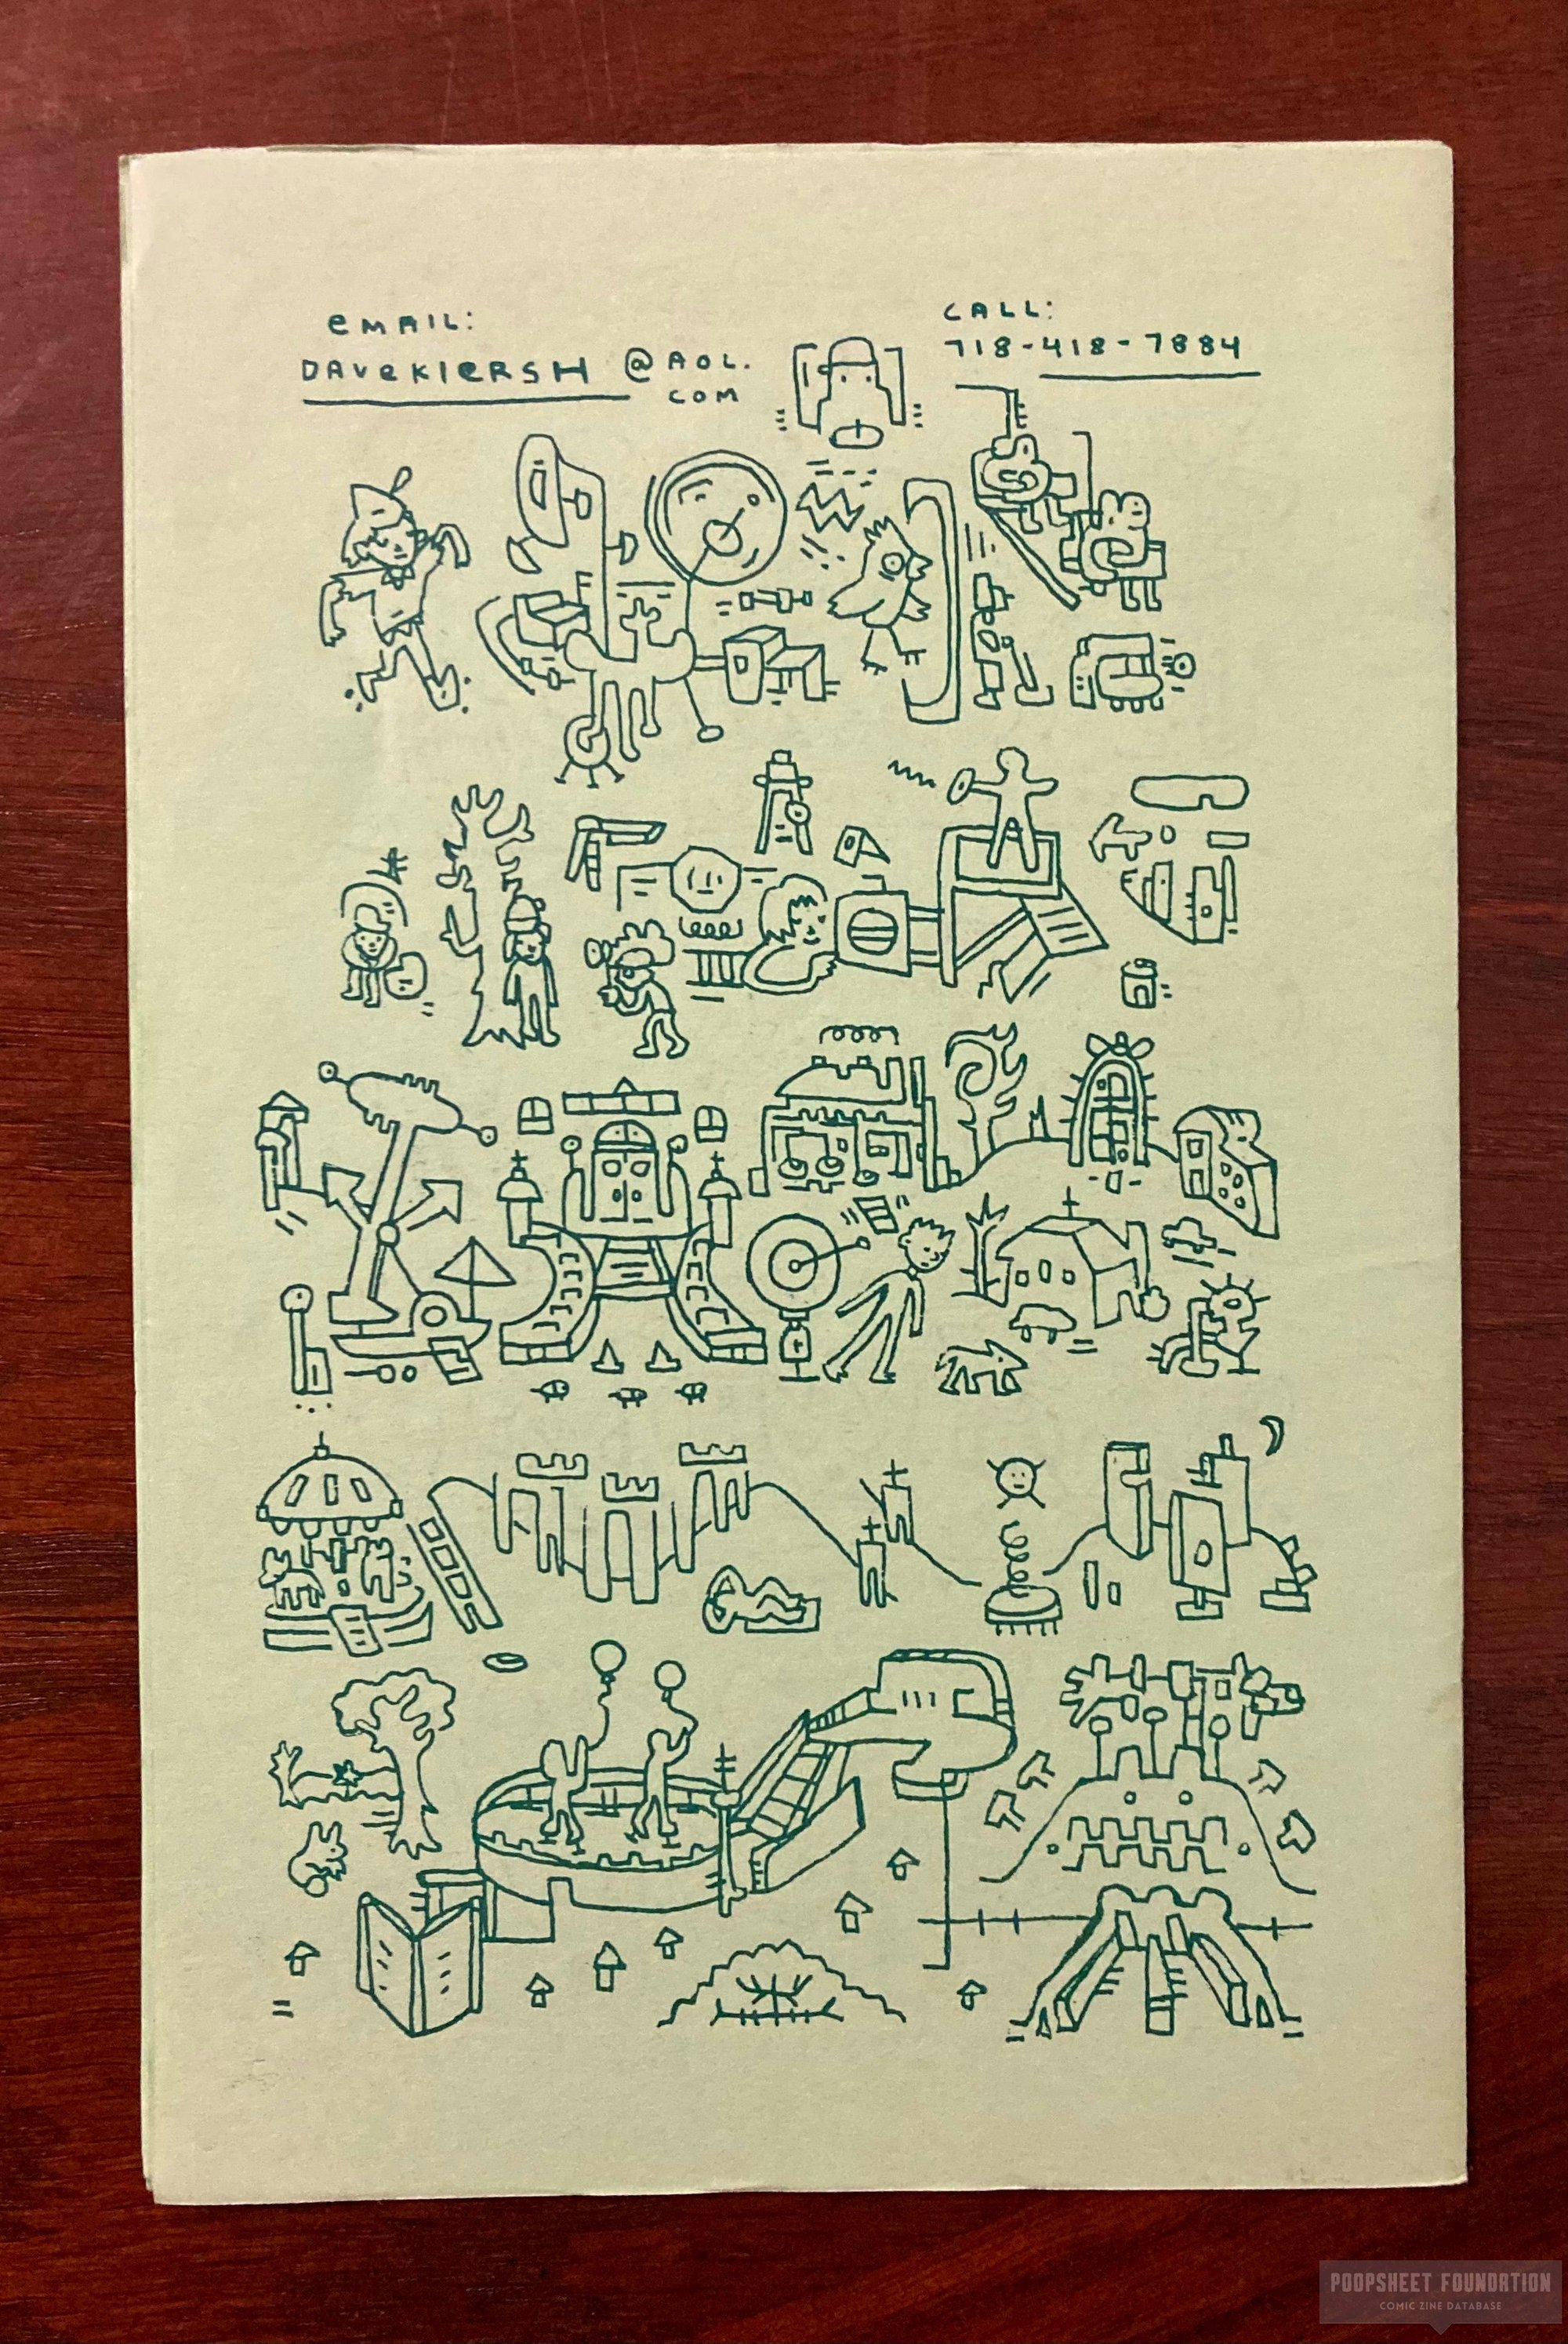 eMAIL:
DAVeKIeRSH @AOL.
COM
CALL:
718-418-7884
POOPSHEET FOUNDATION
COMIC ZINE DATABASE